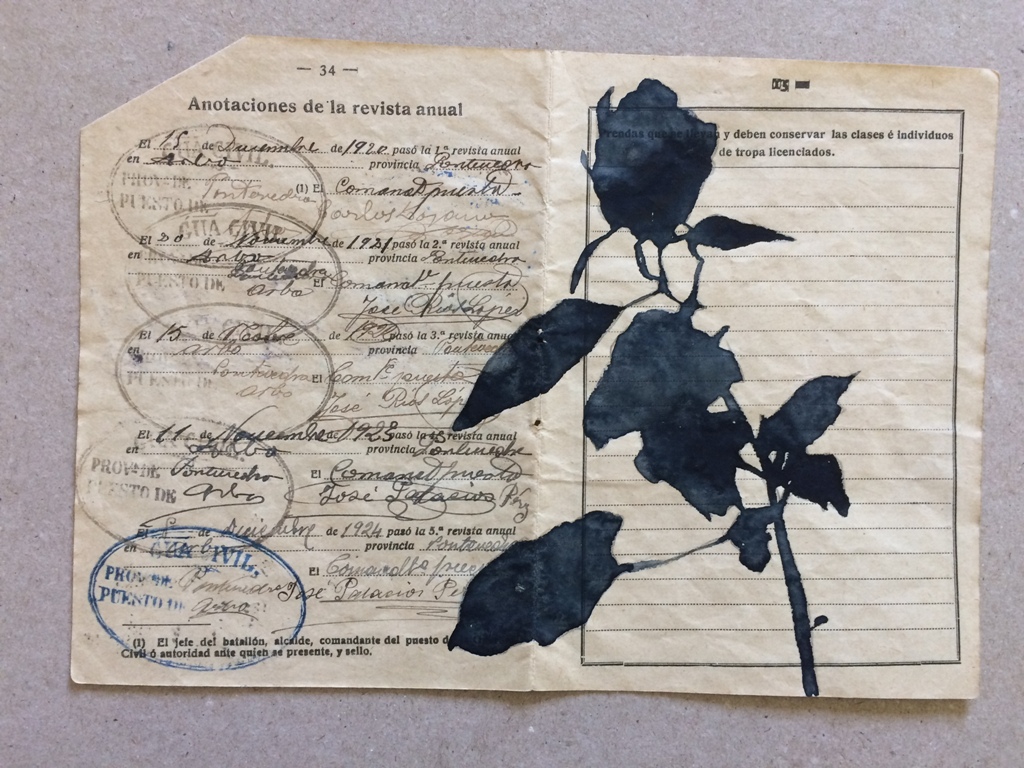 — 34 —
Anotaciones de la revista anual
El 18 de Diciembre de 1920 pasó la 1.ª revista anual
en Arbo provincia Pontevedra
(1) El Comand.te puesto
GUA CIVIL.
PROV.A DE Pontevedra
PUESTO DE
El 20 de Noviembre de 1921 pasó la 2.ª revista anual
en Arbo provincia Pontevedra
El Comand.te puesto
José Rios López
GUA CIVIL
Pontevedra
PUESTO DE Arbo
El 15 de de 192 pasó la 3.ª revista anual
en Arbo provincia Pontevedra
El Com.te puesto
José Rios López
Pontevedra
PUESTO DE Arbo
El 11 de Noviembre de 1923 pasó la revista anual
en Arbo provincia Pontevedra
El Comand.te puesto
José Palacios Pérez
PROV.A DE Pontevedra
PUESTO DE Arbo
El de Diciembre de 1924 pasó la 5.ª revista anual
en provincia Pontevedra
El Comand.te
José Palacios
GUA CIVIL.
PROV.A DE Pontevedra
PUESTO DE Arbo
(1) El jefe del batallón, alcalde, comandante del puesto
Civil ó autoridad ante quien se presente, y sello.
Prendas que se llevan y deben conservar las clases é individuos
de tropa licenciados.